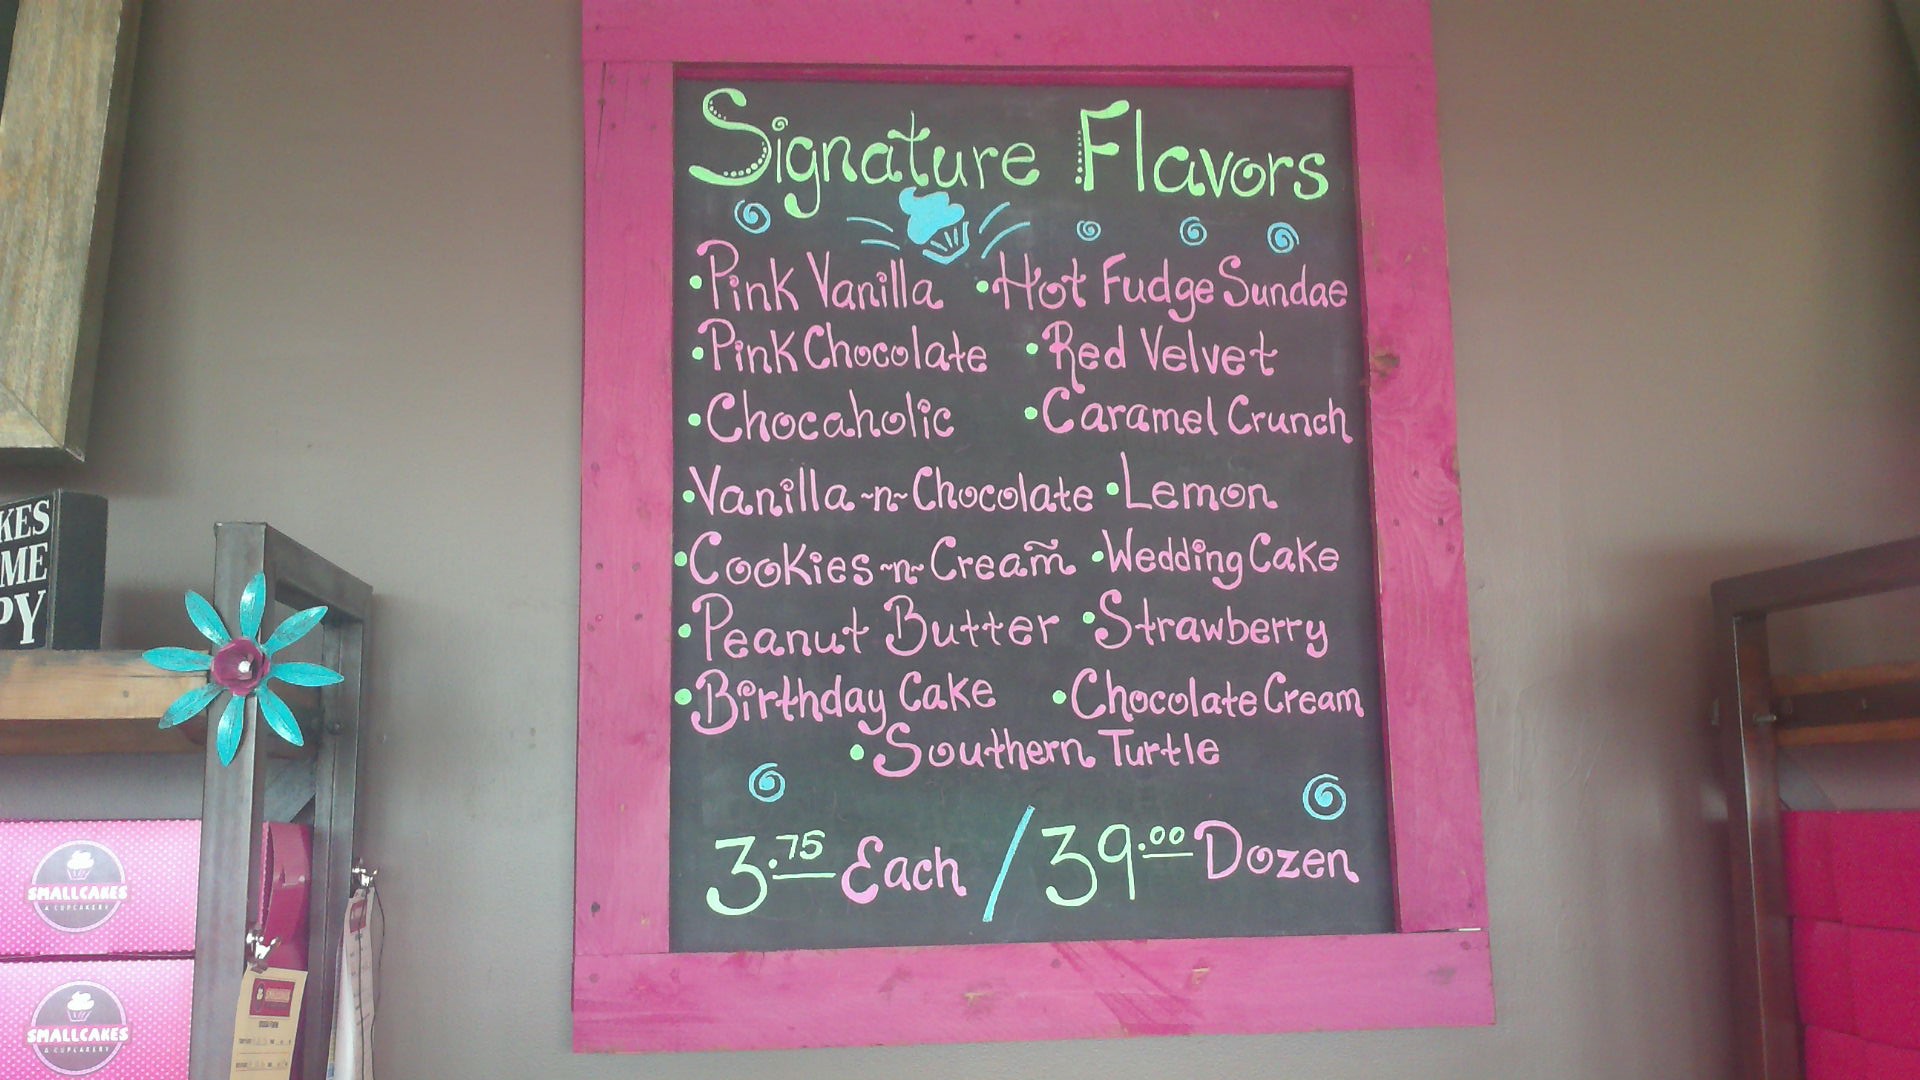 Signature Flavors
•Pink Vanilla •Hot Fudge Sundae
•Pink Chocolate •Red Velvet
•Chocaholic •Caramel Crunch
•Vanilla ~n~ Chocolate •Lemon
•Cookies ~n~ Cream •Wedding Cake
•Peanut Butter •Strawberry
•Birthday Cake •Chocolate Cream
•Southern Turtle
3.75 Each / 39.00 Dozen
KES
ME
PY
SMALLCAKES
A CUPCAKERY
SMALLCAKES
A CUPCAKERY